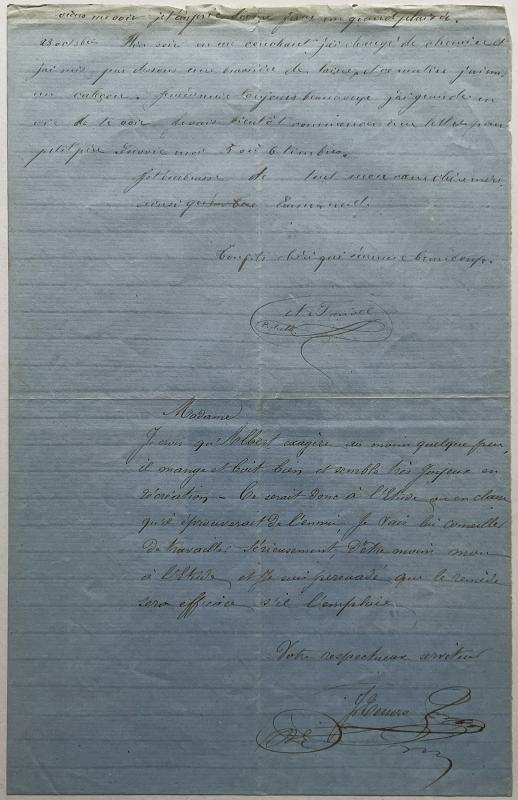 viens me voir je t'en prie
23 octobre Hier soir en me couchant j'ai changé de chemise et
j'ai mis par dessous une de laine, et ce matin j'ai mis
un caleçon. Je m'ennuie toujours beaucoup j'ai grande en
vie de te voir. Je vais bientôt commencer une lettre pour
petit père. Envoie moi 5 ou 6 timbres.
Je t'embrasse de tout mon cœur chère mère
ainsi que Emmanuel.
Ton fils chéri qui s'ennuie beaucoup.
A.
Madame
Je crois qu'Albert exagère au moins quelque peu,
il mange et boit bien et semble très joyeux en
récréation – Ce serait donc à l'Etude ou en classe
qu'il éprouverait de l'ennui, Je vais lui conseiller
de travailler sérieusement, d'être moins mou
à l'Etude, et je suis persuadé que le remède
sera efficace s'il l'emploie
Votre respectueux serviteur